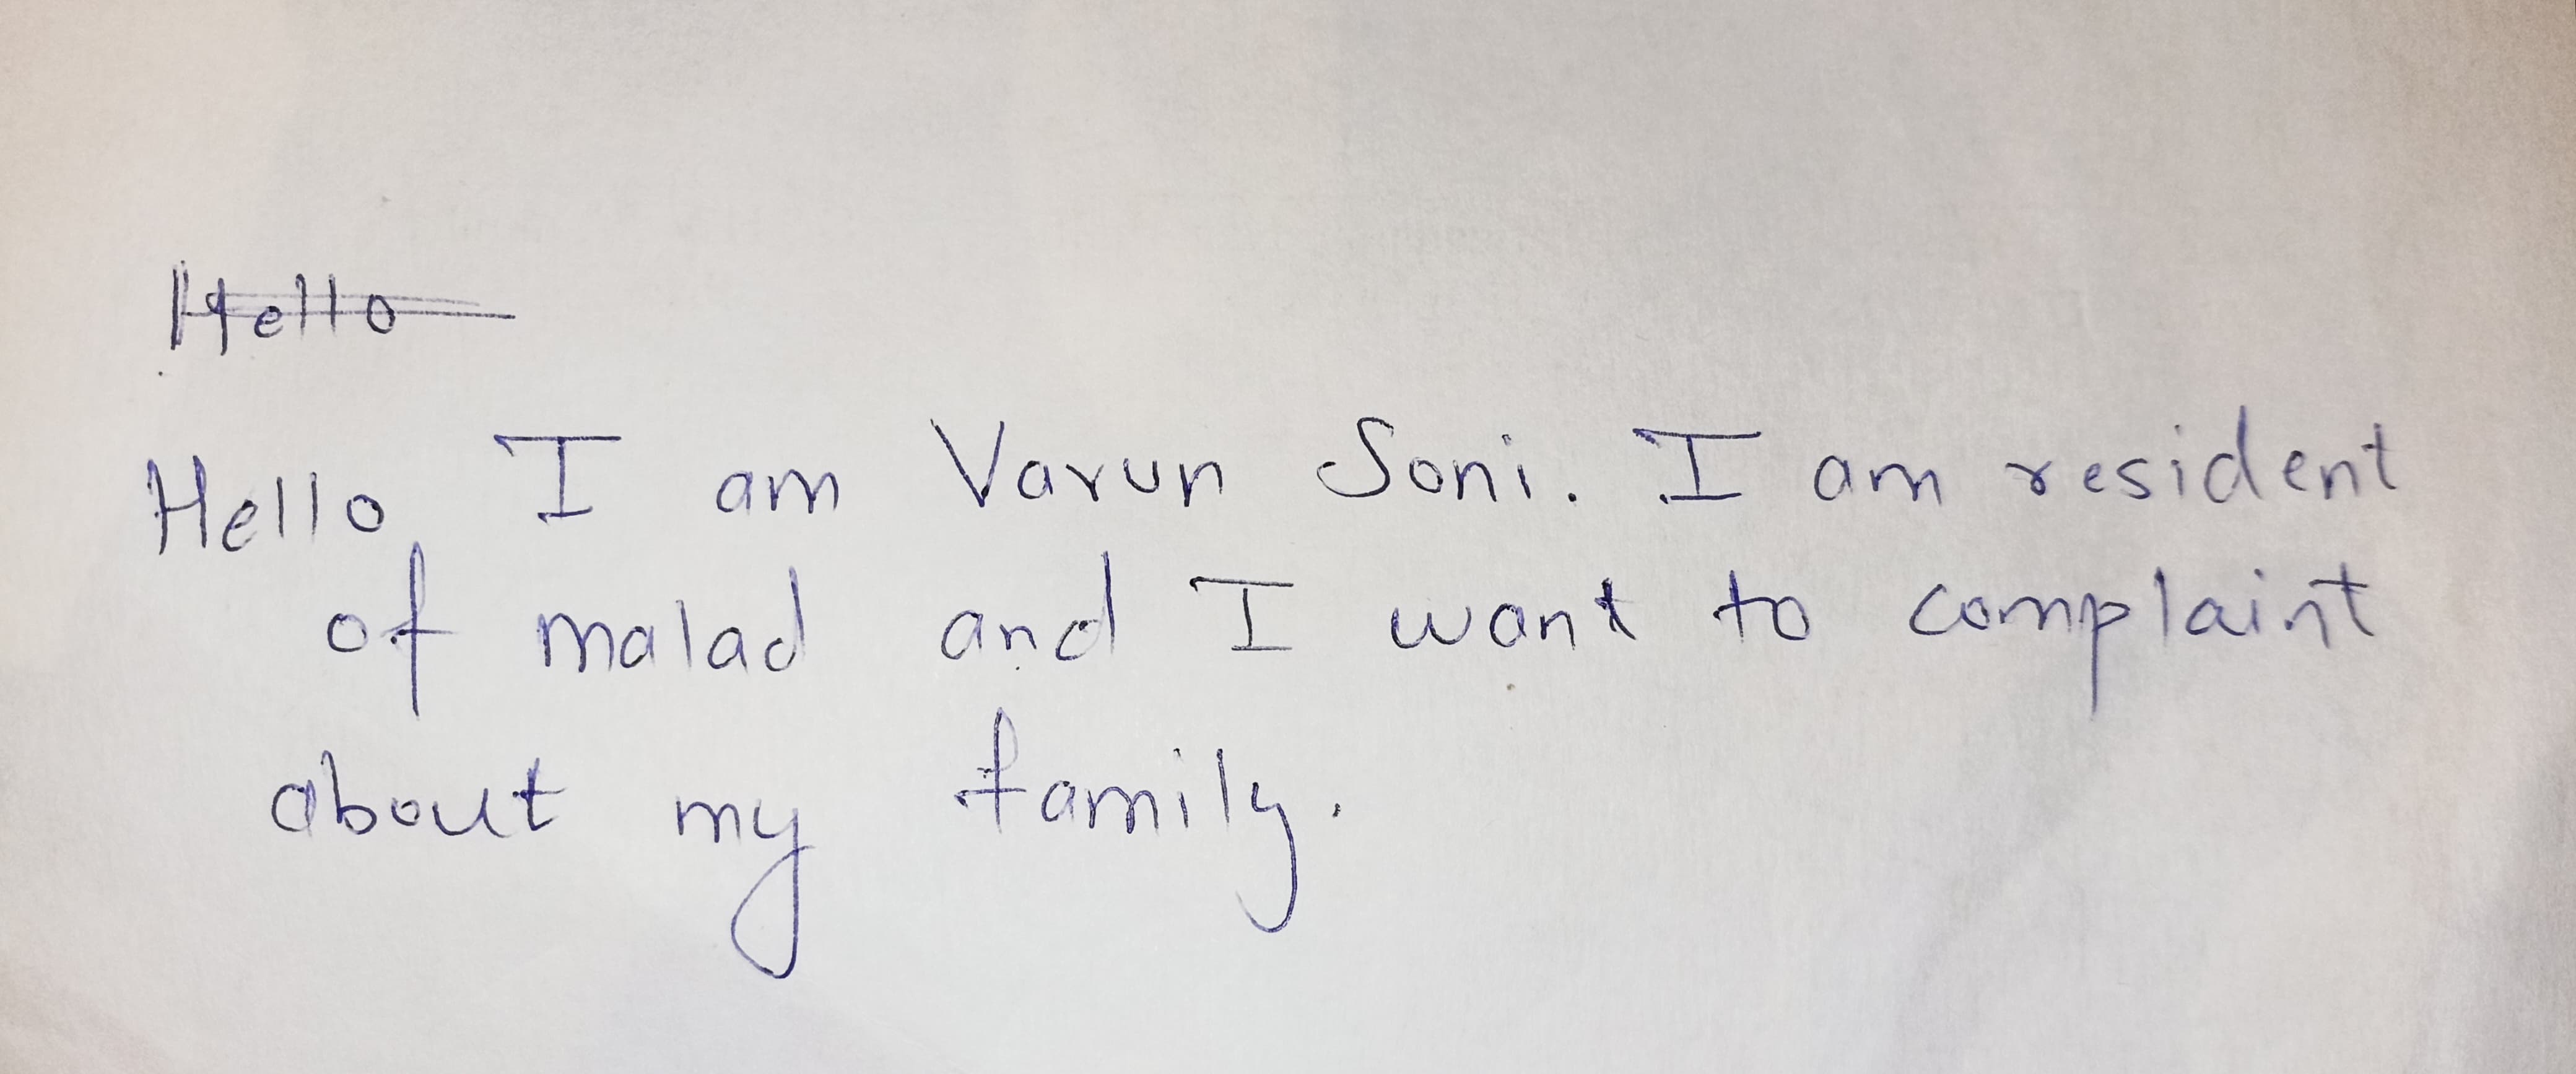 Hello
Hello, I am Varun Soni. I am resident
of malad and I want to complaint
about my family.